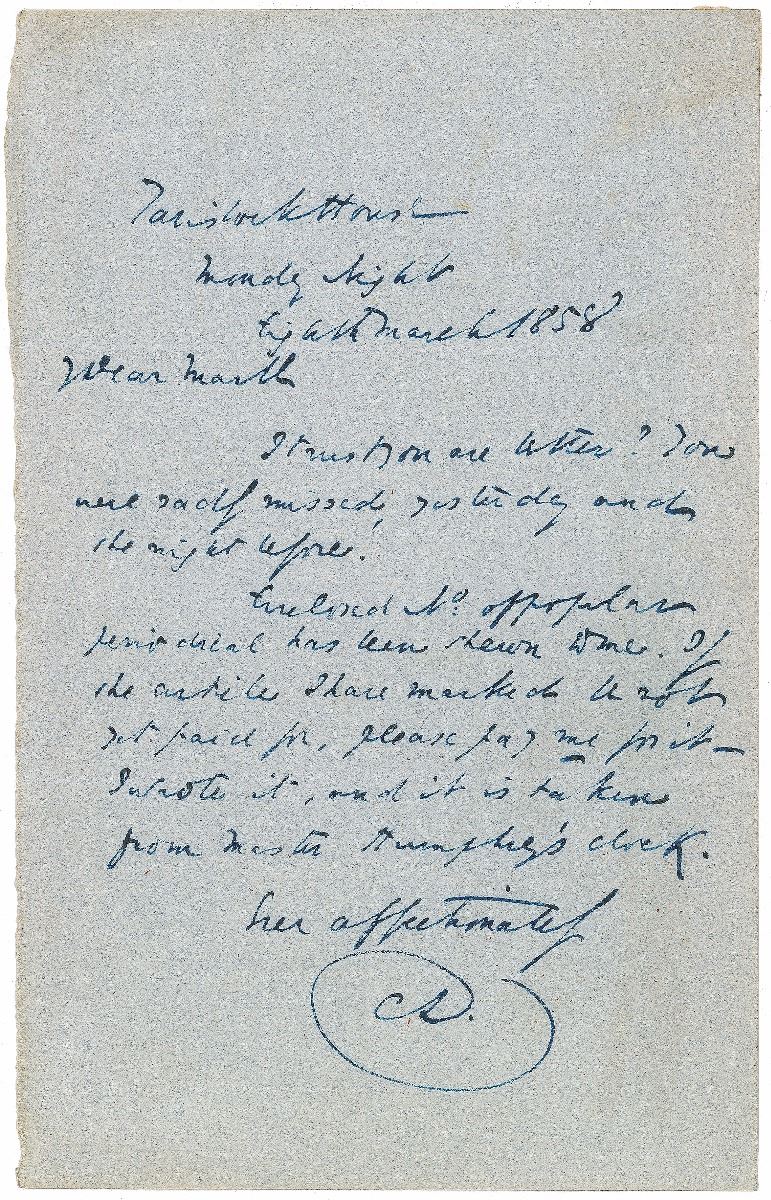 Tavistock House
Monday Night
Eighth March 1858
My Dear Mark
I trust you are better? You
were sadly missed, yesterday and
the night before.
Enclosed No. of popular
periodical has been shewn to me. If
the article I have marked be not
yet paid for, please pay me for it –
I wrote it, and it is taken
from Master Humphrey's clock.
Ever affectionately
CD.